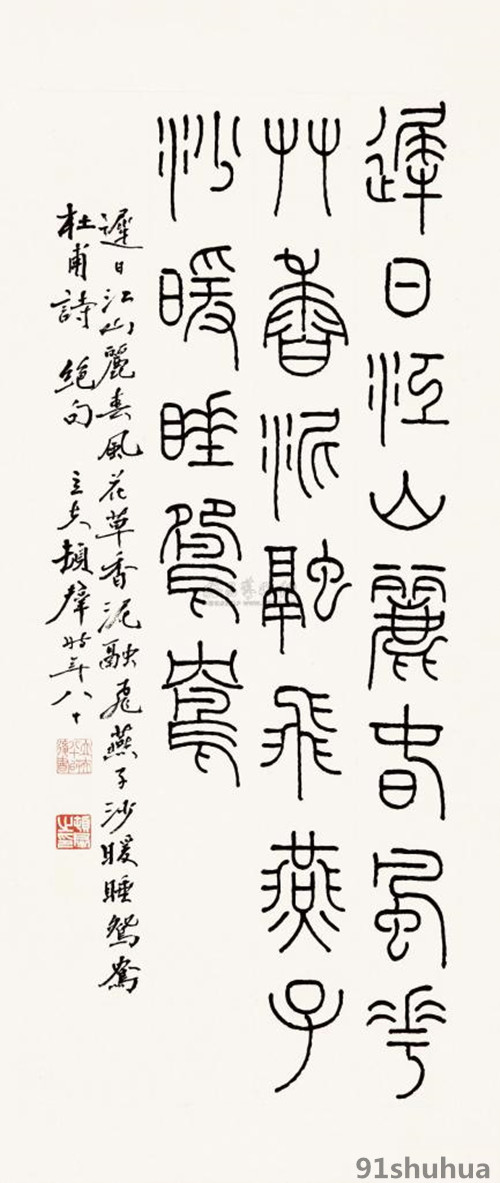 遲日江山麗春風花
艸香泥融飛燕子
沙暖睡鴛鴦
遲日江山麗春風花草香泥融飛燕子沙暖睡鴛鴦
杜甫詩 絕句 立夫頓羣時年八十
91shuhua